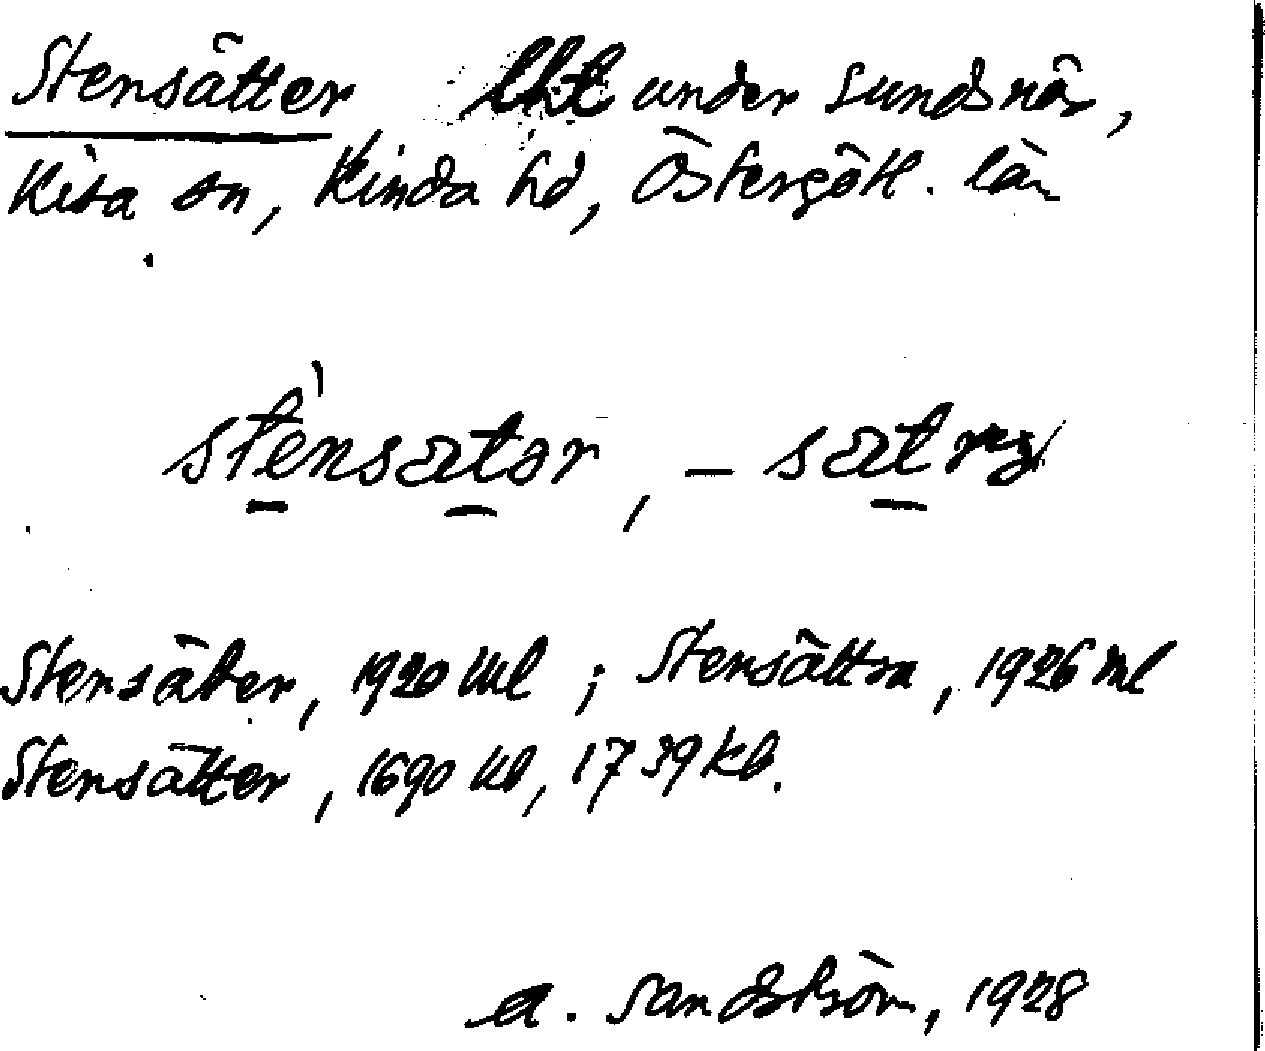 Stensätter lht under Sundsnäs,
Kisa sn, Kinda hd, Östergötl. län
stensatər, - sat
Stensäter, 1920 ml; Stensättra, 1926 ml
Stensätter, 1690 kb, 1739 kb.
A. Sandström, 1928